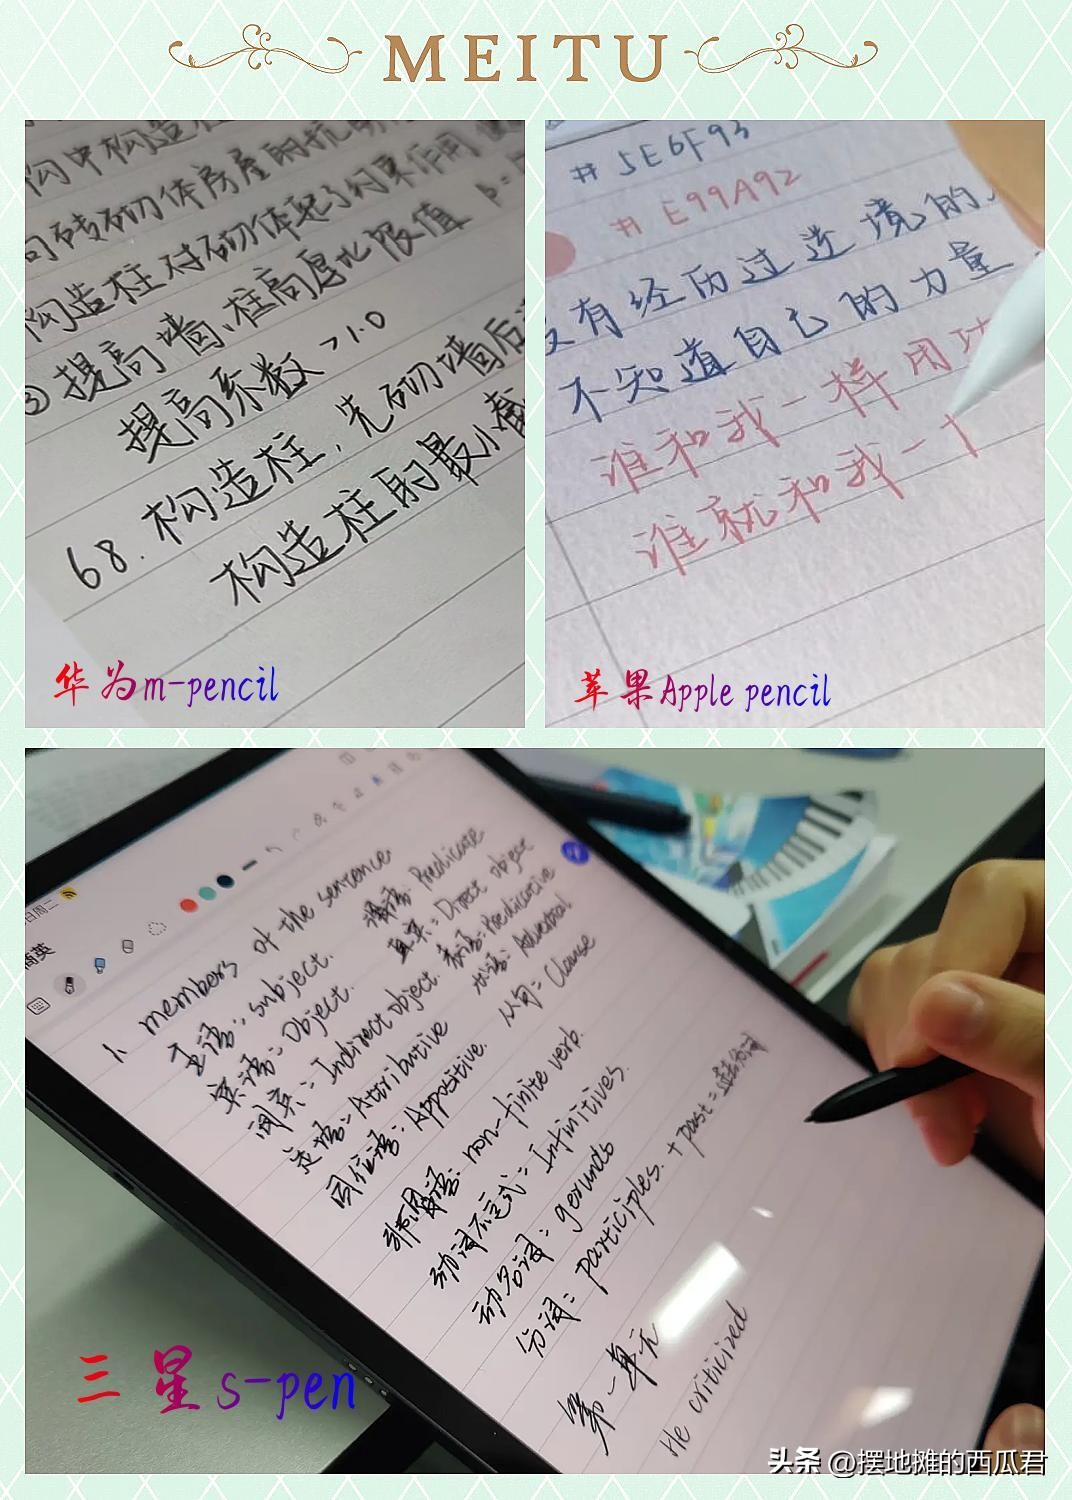 MEITU
构中构造
砖砌体房屋的抗
构造柱对砌体起了约束作用
③提高墙、柱高厚比限值 β=
提高系数>1.0
68.构造柱,先砌墙后
构造柱的最小截
华为m-pencil
#5E6F93
#E99A92
没有经历过逆境的人
不知道自己的力量
谁和我一样用功
谁就和我一
苹果Apple pencil
周二
商英
1. members of the sentence
主语:subject. 谓语:Predicate
宾语:Object. 直宾:Direct object
间宾:Indirect object. 表语:Predicative
定语:Attributive 状语:Adverbial
同位语:Appositive. 从句:Clause
非谓语:non-finite verb.
动词不定式:Infinitives.
动名词:gerunds
分词:participles. + past=过去分词
第一单元
He criticized
三星s-pen
头条 @摆地摊的西瓜君